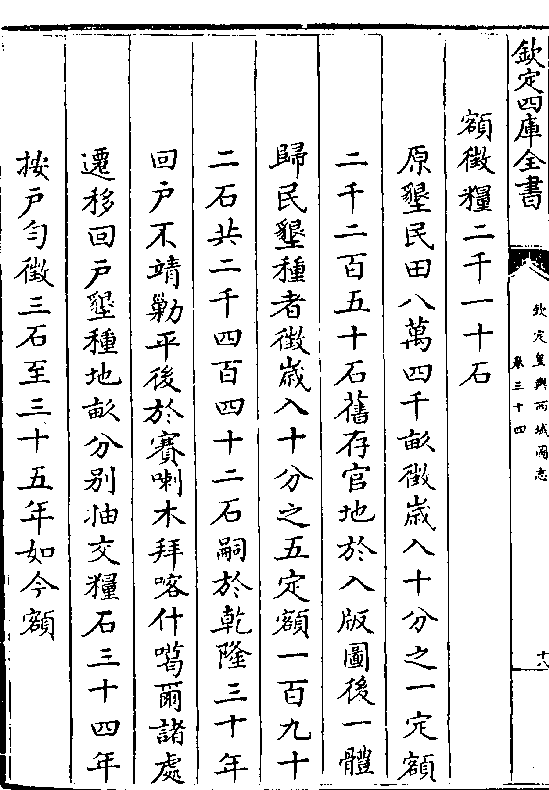 欽定四庫全書
欽定皇輿西域圖志
卷三十四
十八
額徵糧二千一十石
原墾民田八萬四千畝徵歲入十分之一定額
二千二百五十石舊存官地於入版圖後一體
歸民墾種者徵歲入十分之五定額一百九十
二石共二千四百四十二石嗣於乾隆三十年
回户不靖勦平後於賽喇木拜喀什噶爾諸處
遷移回户墾種地畝分别抽交糧石三十四年
按户勻徵三石至三十五年如今額